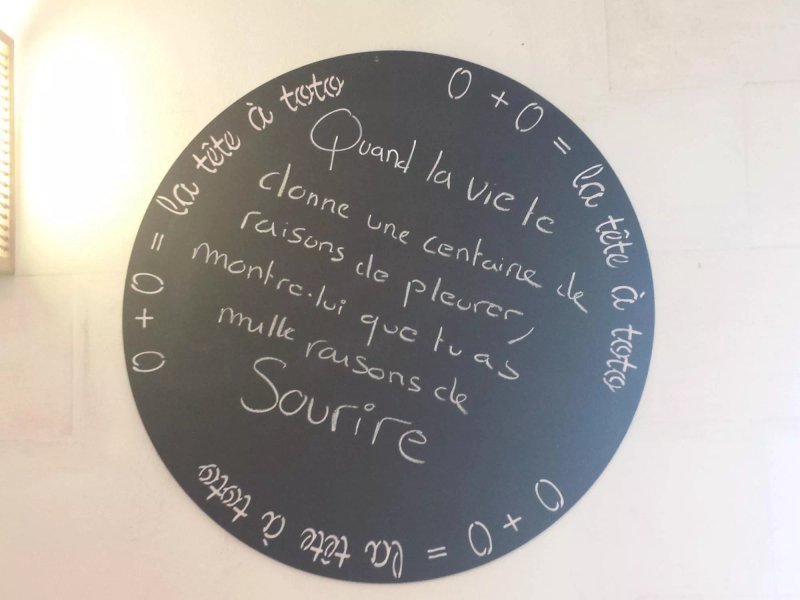 0 + 0 = la tête à toto
0 + 0 = la tête à toto
0 + 0 = la tête à toto
Quand la vie te
donne une centaine de
raisons de pleurer,
montre-lui que tu as
mille raisons de
Sourire